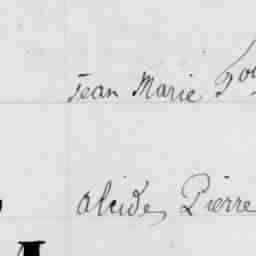 Jean Marie
Alcide, Pierre